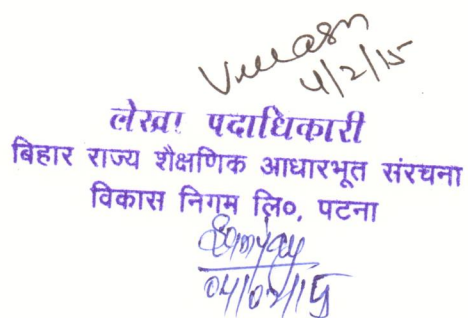 4/2/15
लेखा पदाधिकारी
बिहार राज्य शैक्षणिक आधारभूत संरचना
विकास निगम लि०, पटना
04/02/15